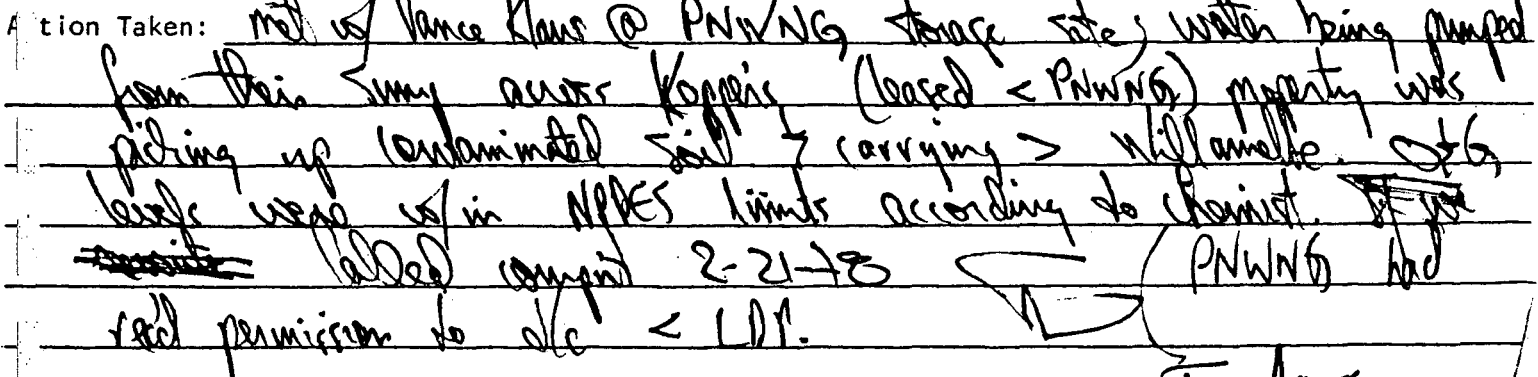 A tion Taken: met w/ Vance Klaus @ PNWNG storage site; water being pumped
from their sump across Koppers (leased < PNWNG) property was
picking up contaminated soil & carrying > Willamette. O+G
levels were w/in NPDES limits according to chemist.
Called compnt 2-21-78 PNWNG had
rec'd permission to d/c < LDP.